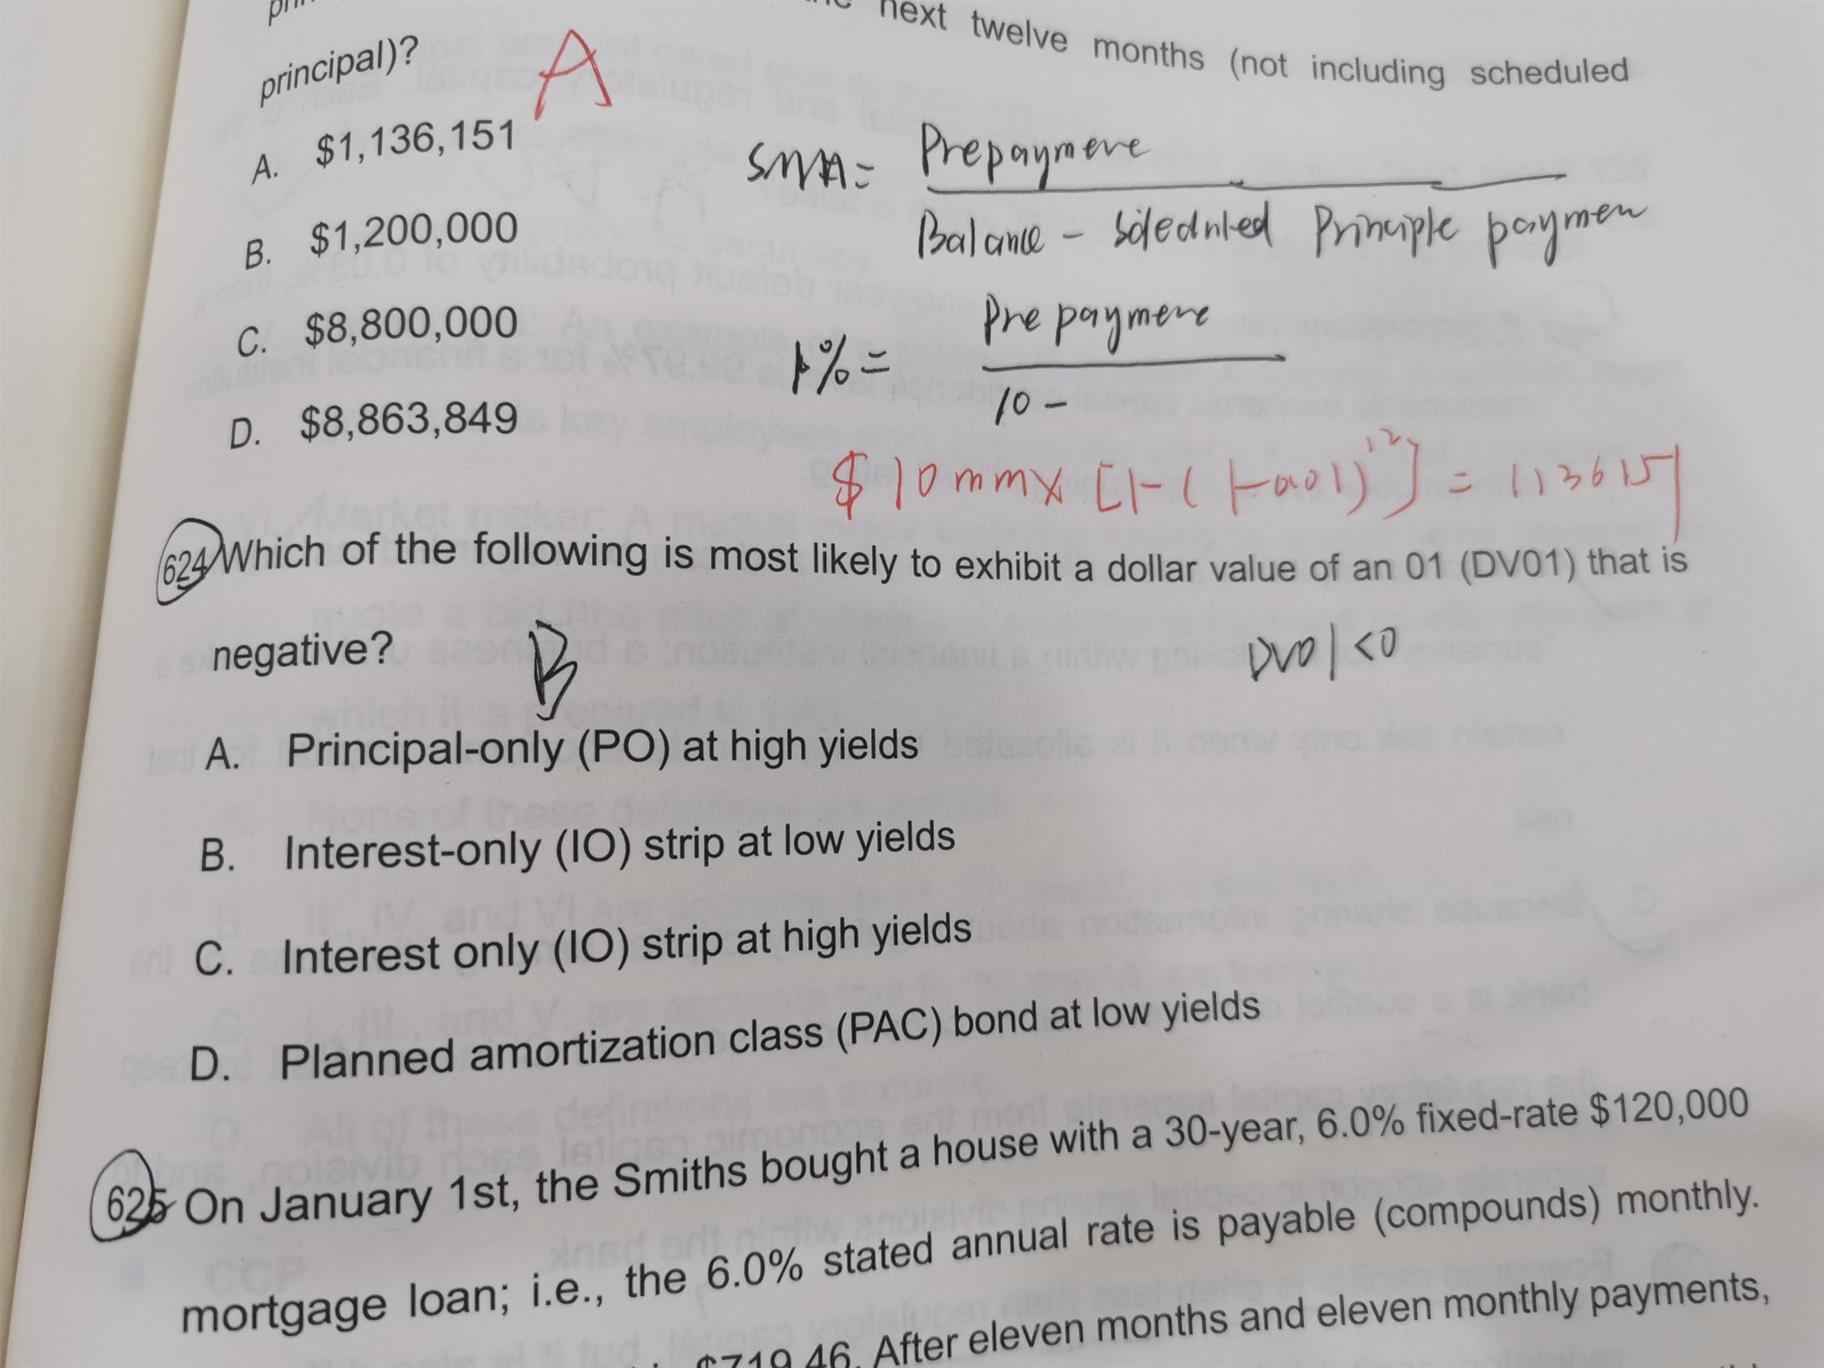 next twelve months (not including scheduled
principal)? A
A. $1,136,151
SMM = Prepaymene
Balance - Principle paymen
B. $1,200,000
C. $8,800,000
1% = Prepaymene
10 -
D. $8,863,849
$10mm x [1-(1-0.01)^12] = 1136151
624 Which of the following is most likely to exhibit a dollar value of an 01 (DV01) that is
negative? B DV01<0
A. Principal-only (PO) at high yields
B. Interest-only (IO) strip at low yields
C. Interest only (IO) strip at high yields
D. Planned amortization class (PAC) bond at low yields
625 On January 1st, the Smiths bought a house with a 30-year, 6.0% fixed-rate $120,000
mortgage loan; i.e., the 6.0% stated annual rate is payable (compounds) monthly.
$719.46. After eleven months and eleven monthly payments,